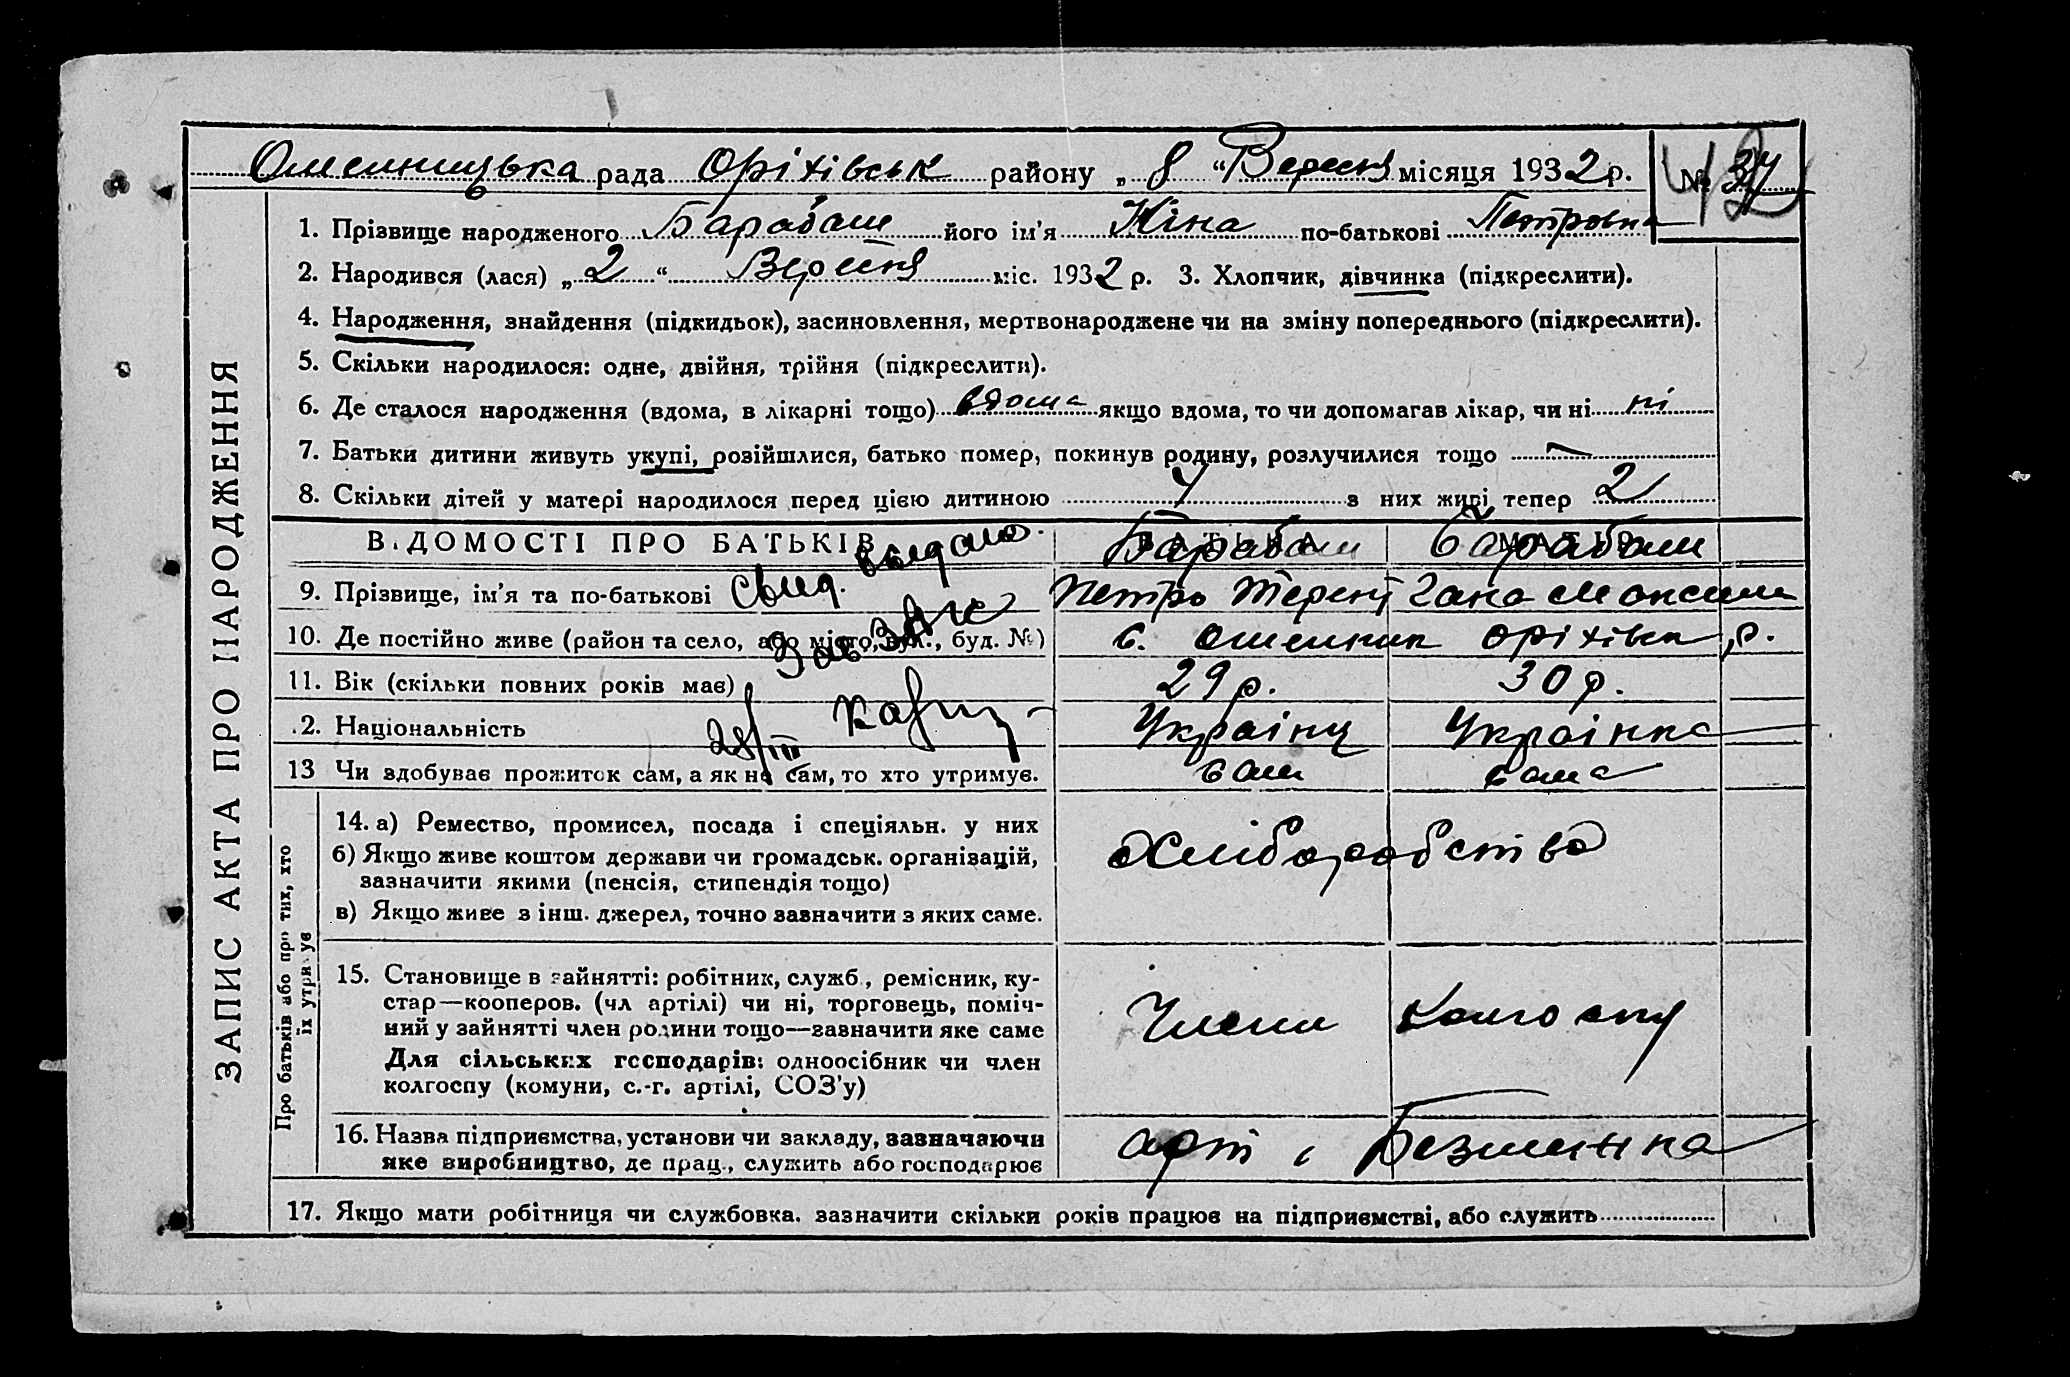 Омелницька рада Оріхівськ району „ 8 “ Вересня місяця 1932 р. № 37
ЗАПИС АКТА ПРО НАРОДЖЕННЯ
1. Прізвище народженого Барабаш його ім'я Ніна по-батькові Петровна
2. Народився (лася) „ 2 “ Вересня міс. 1932 р. 3. Хлопчик, дівчинка (підкреслити).
4. Народження, знайдення (підкидьок), засиновлення, мертвонароджене чи на зміну попереднього (підкреслити).
5. Скільки народилося: одне, двійня, трійня (підкреслити).
6. Де сталося народження (вдома, в лікарні тощо) вдома якщо вдома, то чи допомагав лікар, чи ні ні
7. Батьки дитини живуть укупі, розійшлися, батько помер, покинув родину, розлучилися тощо —
8. Скільки дітей у матері народилося перед цією дитиною 4 з них живі тепер 2
ВІДОМОСТІ ПРО БАТЬКІВ БАТЬКА МАТІР
Барабаш Барабаш
9. Прізвище, ім'я та по-батькові Петро Терент Гана Максим
свид. выдано.
10. Де постійно живе (район та село, або місто, вул., буд. №) с. Омелник Оріхівск р.
Зав ЗАГС
11. Вік (скільки повних років має) 29 р. 30 р.
12. Національність Українц Українка
28/III
13 Чи здобуває прожиток сам, а як не сам, то хто утримує. сам сама
Про батьків або про тих, хто їх утримує
14. а) Ремество, промисел, посада і спеціяльн. у них
б) Якщо живе коштом держави чи громадськ. організацій,
зазначити якими (пенсія, стипендія тощо)
в) Якщо живе з інш. джерел, точно зазначити з яких саме.
Хліборобство
15. Становище в зайнятті: робітник, служб., ремісник, ку-
стар—кооперов. (чл артілі) чи ні, торговець, поміч-
ний у зайнятті член родини тощо—зазначити яке саме
Для сільських господарів: одноосібник чи член
колгоспу (комуни, с.-г. артілі, СОЗ'у)
Члени колгоспу
16. Назва підприємства, установи чи закладу, зазначаючи
яке виробництво, де прац., служить або господарює
арт
17. Якщо мати робітниця чи службовка, зазначити скільки років працює на підприємстві, або служить